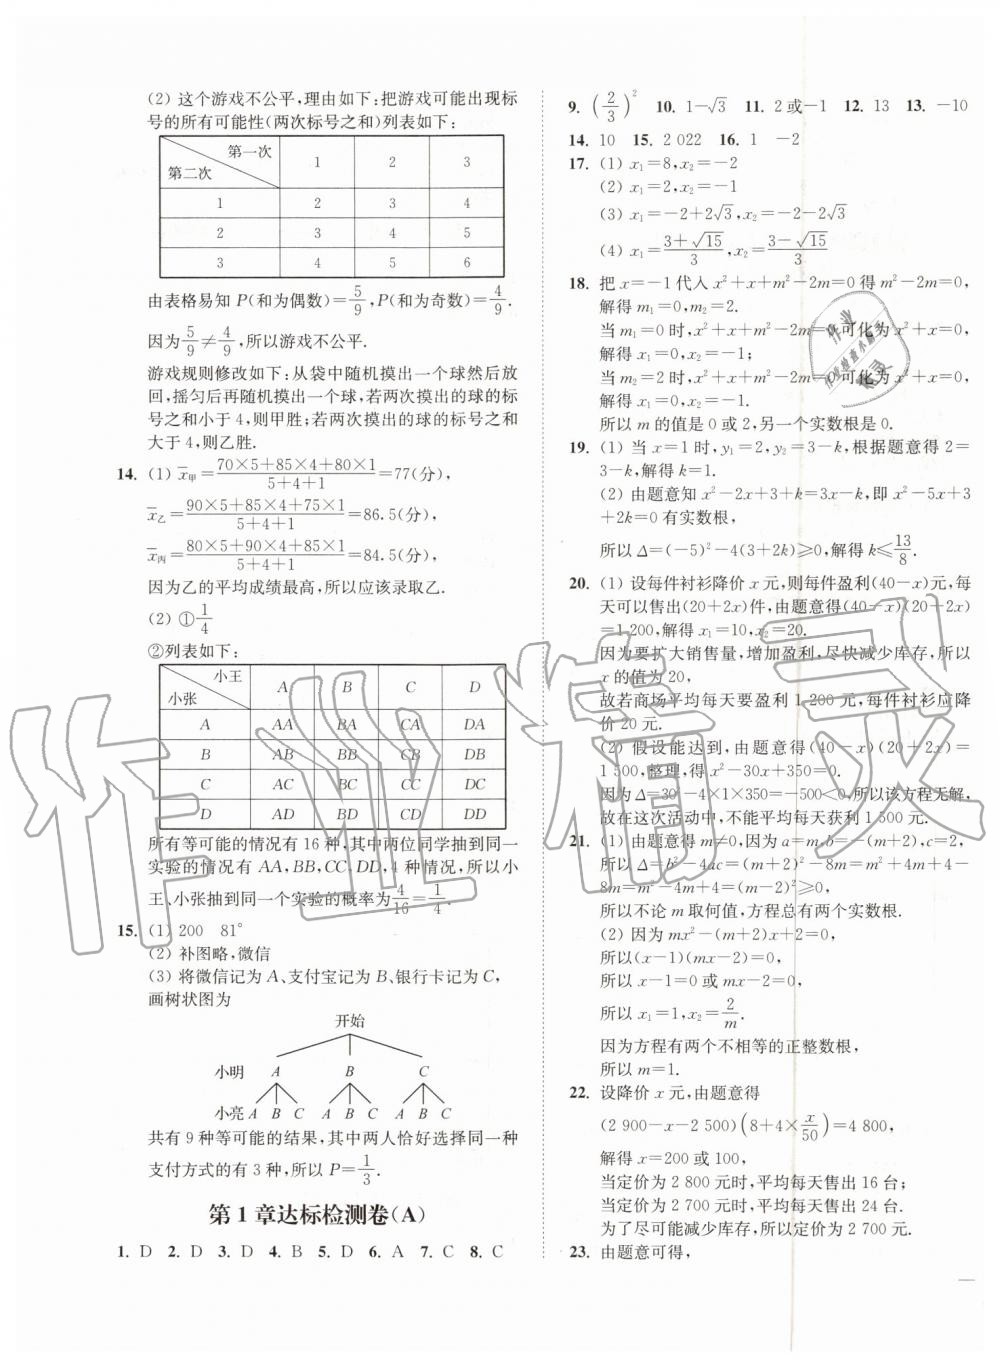 (2) 这个游戏不公平,理由如下:把游戏可能出现标
号的所有可能性(两次标号之和)列表如下:
第一次 1 2 3
第二次
1 2 3 4
2 3 4 5
3 4 5 6
由表格易知 P(和为偶数)=5/9,P(和为奇数)=4/9.
因为5/9≠4/9,所以游戏不公平.
游戏规则修改如下:从袋中随机摸出一个球然后放
回,摇匀后再随机摸出一个球,若两次摸出的球的标
号之和小于4,则甲胜;若两次摸出的球的标号之和
大于4,则乙胜.
14. (1) x̄甲=(70×5+85×4+80×1)/(5+4+1)=77(分),
x̄乙=(90×5+85×4+75×1)/(5+4+1)=86.5(分),
x̄丙=(80×5+90×4+85×1)/(5+4+1)=84.5(分),
因为乙的平均成绩最高,所以应该录取乙.
(2) ①1/4
②列表如下:
小王 A B C D
小张
A AA BA CA DA
B AB BB CB DB
C AC BC CC DC
D AD BD CD DD
所有等可能的情况有16种,其中两位同学抽到同一
实验的情况有 AA,BB,CC,DD,4种情况,所以小
王、小张抽到同一个实验的概率为4/16=1/4.
15. (1) 200 81°
(2) 补图略,微信
(3) 将微信记为A、支付宝记为B、银行卡记为C,
画树状图为
开始
小明 A B C
小亮 A B C A B C A B C
共有9种等可能的结果,其中两人恰好选择同一种
支付方式的有3种,所以 P=1/3.
第1章达标检测卷(A)
1. D 2. D 3. D 4. B 5. D 6. A 7. C 8. C
9. (2/3)² 10. 1-√3 11. 2或-1 12. 13 13. -10
14. 10 15. 2 022 16. 1 -2
17. (1) x₁=8,x₂=-2
(2) x₁=2,x₂=-1
(3) x₁=-2+2√3,x₂=-2-2√3
(4) x₁=(3+√15)/3,x₂=(3-√15)/3
18. 把x=-1代入x²+x+m²-2m=0得m²-2m=0,
解得m₁=0,m₂=2.
当m₁=0时,x²+x+m²-2m=0可化为x²+x=0,
解得x₁=0,x₂=-1;
当m₂=2时,x²+x+m²-2m=0可化为x²+x=0,
解得x₁=0,x₂=-1.
所以m的值是0或2,另一个实数根是0.
19. (1) 当x=1时,y₁=2,y₂=3-k,根据题意得2=
3-k,解得k=1.
(2) 由题意知x²-2x+3+k=3x-k,即x²-5x+3
+2k=0有实数根,
所以Δ=(-5)²-4(3+2k)≥0,解得k≤13/8.
20. (1) 设每件衬衫降价x元,则每件盈利(40-x)元,每
天可以售出(20+2x)件,由题意得(40-x)(20+2x)
=1 200,解得x₁=10,x₂=20.
因为要扩大销售量,增加盈利,尽快减少库存,所以
x的值为20,
故若商场平均每天要盈利1 200元,每件衬衫应降
价20元.
(2) 假设能达到,由题意得(40-x)(20+2x)=
1 500,整理,得x²-30x+350=0.
因为Δ=30²-4×1×350=-500<0,所以该方程无解,
故在这次活动中,不能平均每天获利1 500元.
21. (1) 由题意得m≠0,因为a=m,b=-(m+2),c=2,
所以Δ=b²-4ac=(m+2)²-8m=m²+4m+4-
8m=m²-4m+4=(m-2)²≥0,
所以不论m取何值,方程总有两个实数根.
(2) 因为mx²-(m+2)x+2=0,
所以(x-1)(mx-2)=0,
所以x-1=0或mx-2=0,
所以x₁=1,x₂=2/m.
因为方程有两个不相等的正整数根,
所以m=1.
22. 设降价x元,由题意得
(2 900-x-2 500)(8+4×x/50)=4 800,
解得x=200或100,
当定价为2 800元时,平均每天售出16台;
当定价为2 700元时,平均每天售出24台.
为了尽可能减少库存,所以定价为2 700元.
23. 由题意可得,
作业精灵